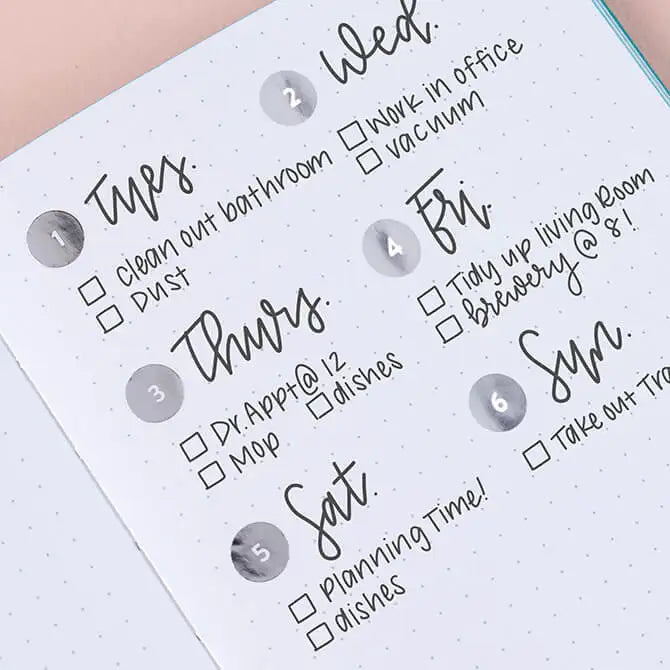 1
Tues.
clean out bathroom
Dust
2
Wed.
Work in office
vacuum
3
Thurs.
Dr. Appt @ 12
Mop
dishes
4
Fri.
Tidy up living Room
brewery @ 8!
5
Sat.
Planning Time!
dishes
6
Sun.
Take out Tra